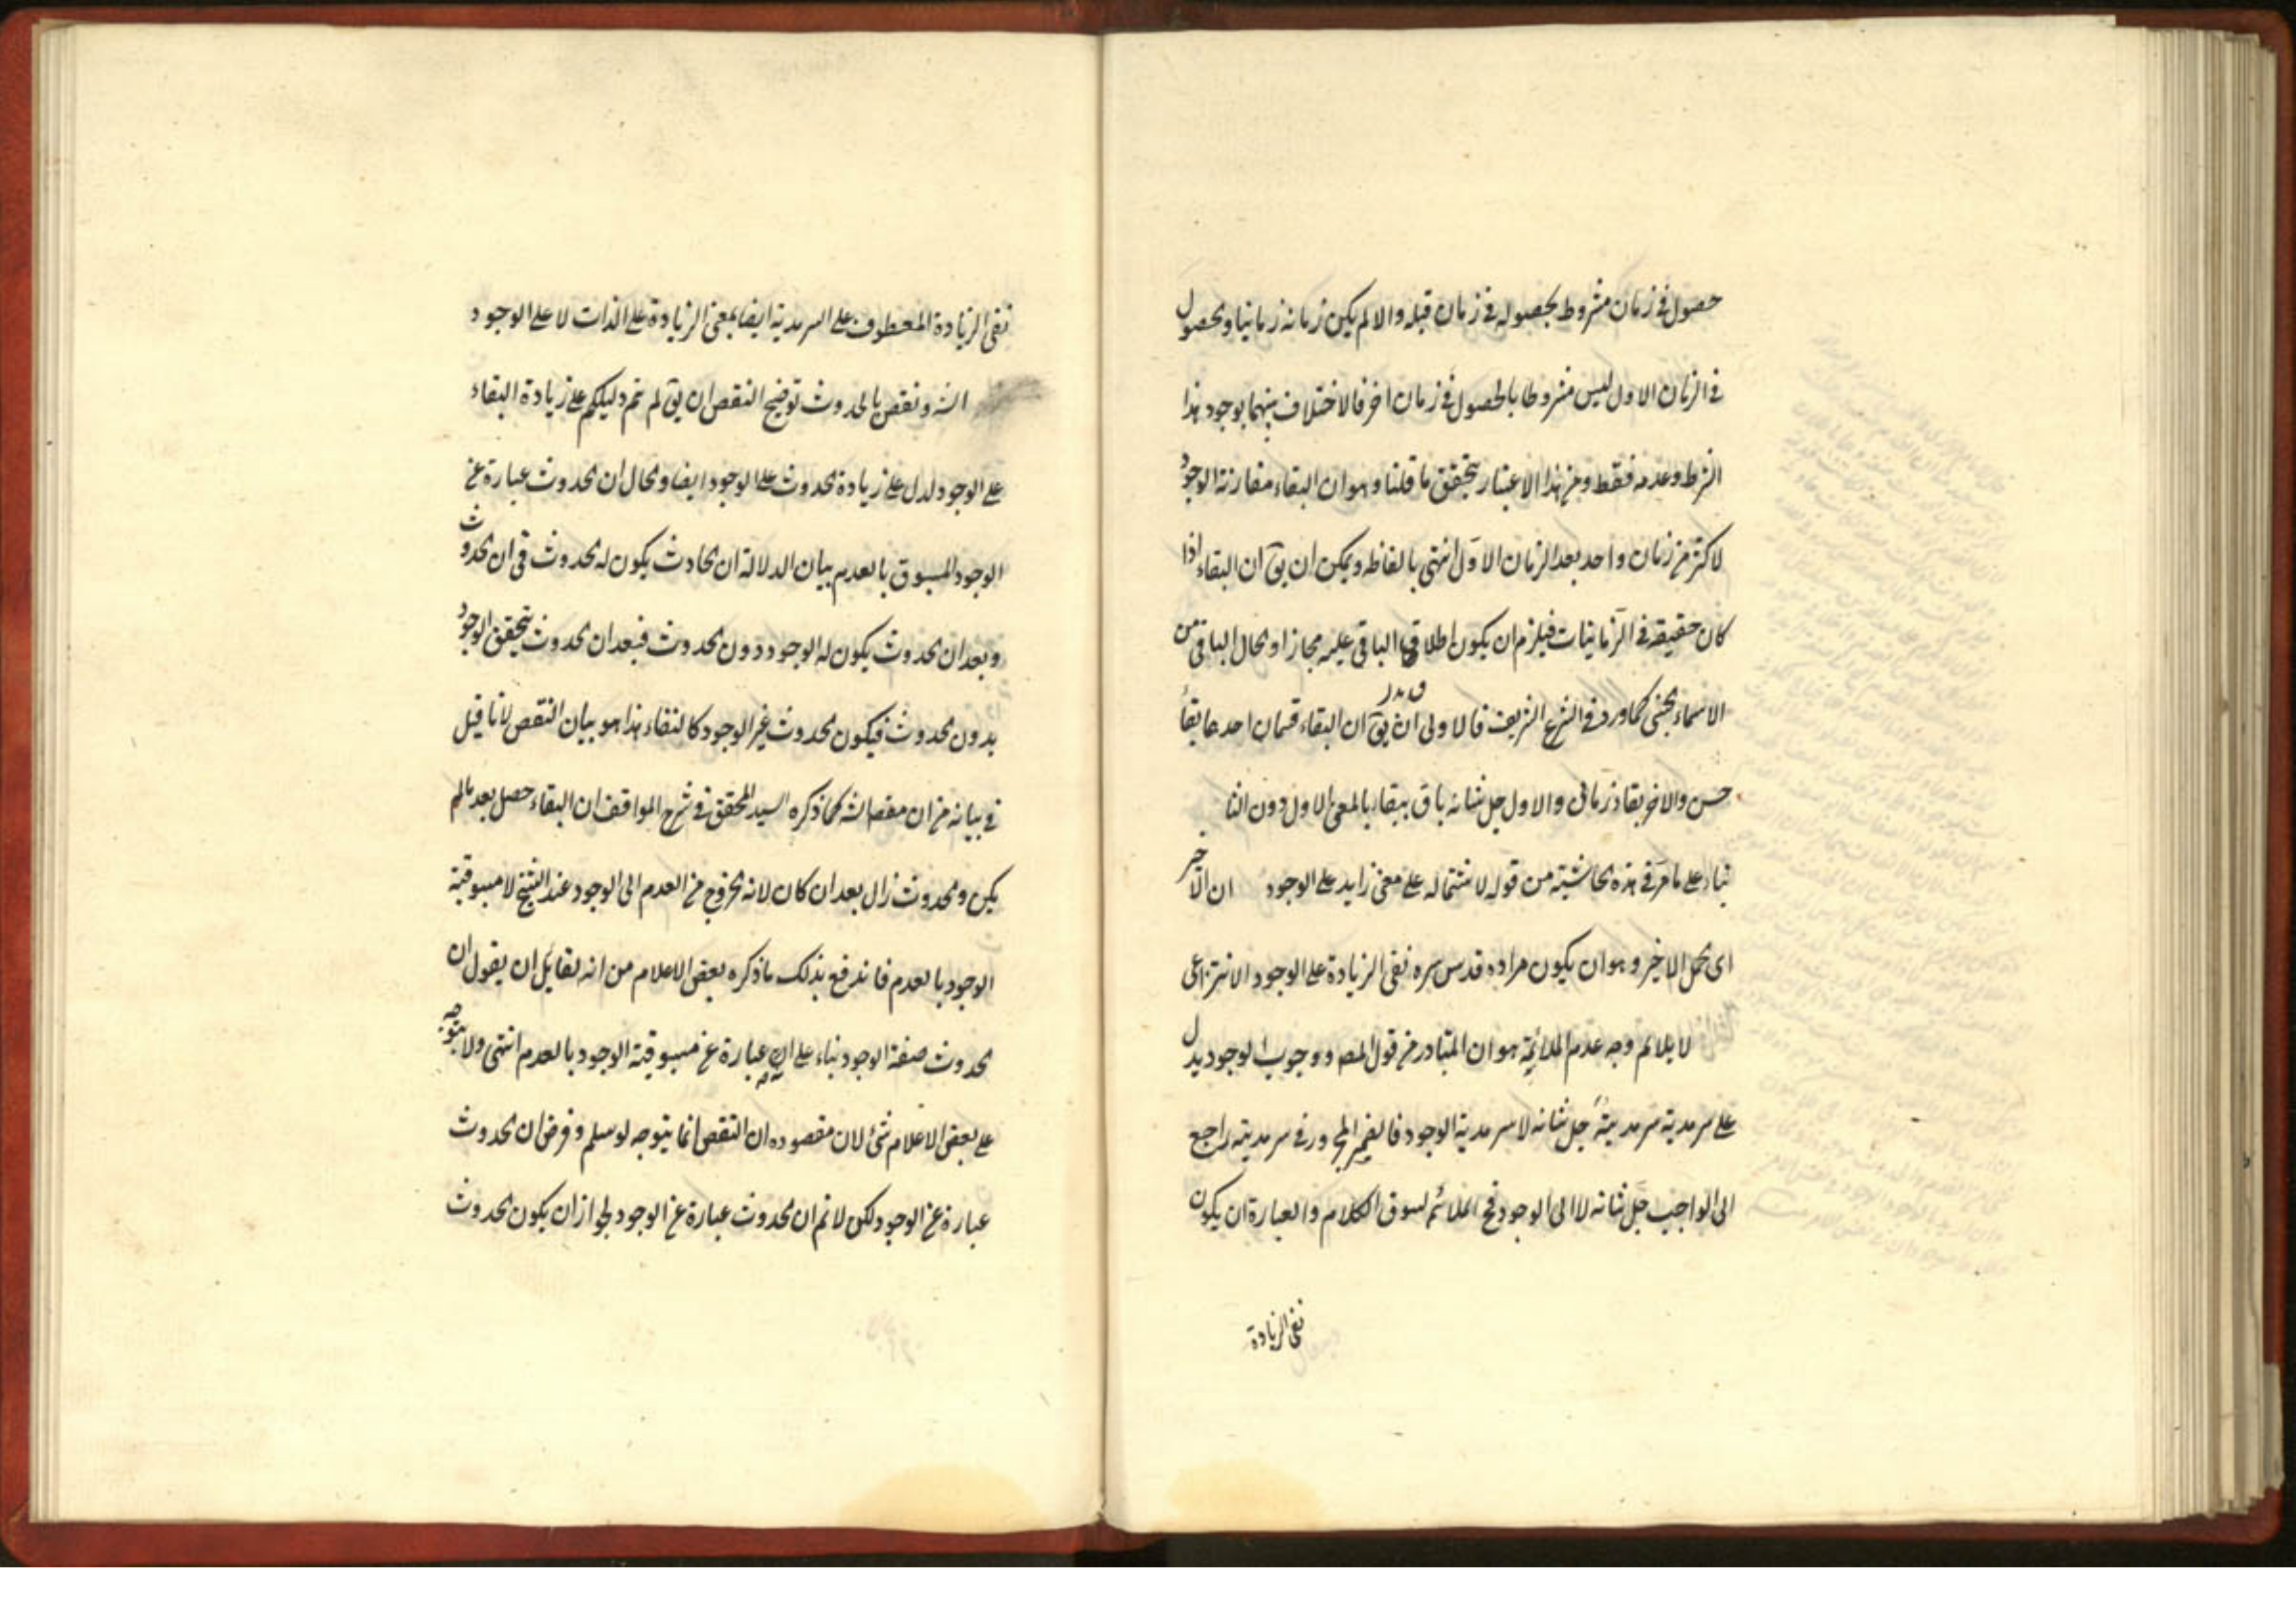 حصول فى زمان مشروط بحصوله فى زمان قبله والا لم يكن زمانه زمانيا وحصول
فى الزمان الاول ليس مشروطا بالحصول فى زمان اخر فالاختلاف بينهما بوجود هذا
الشرط وعدمه فقط ومن هذا الاعتبار يتحقق ما قلنا وهو ان البقاء مقارنة الوجود
لاكثر من زمان واحد بعد الزمان الاول انتهى بالفاظه ويمكن ان يقٓ ان البقاء اذا
كان حقيقة فى الزمانيات فيلزم ان يكون اطلاق الباقى عليه مجازا والحال الباقى من
الاسماء الحسنى كما ورد فى الشرع الشريف فالاولى ان يقٓ ان البقاء قسمان احدها بقاء
حسن والاخر بقاء زمانى والاول جل شانه باق ببقاء بالمعنى الاول دون الثا
بناء على ما مر فى هذه الحاشية من قوله لاشتماله على معنى زايد على الوجود ان الاخير
اى الحمل الاخير وهو ان يكون مراده قدس سره نفى الزيادة على الوجود الانتزاعى
لا يلائم وجه عدم الملائمة هو ان المتبادر من قول المصه ووجوب الوجود يدل
على سرمدية سرمديته جل شانه لا سرمدية الوجود فالضمير المجرور فى سرمديته راجع
الى الواجب جل شانه لا الى الوجود فح الملائم لسوق الكلام والعبارة ان يكون
نفى الزيادة
نفى الزيادة المعطوف على السرمدية ايضا بمعنى الزيادة على الذات لا على الوجود
الشه ونقض بالحدوث توضيح النقض ان يقٓ لو تم دليلكم على زيادة البقاء
على الوجود لدل على زيادة الحدوث على الوجود ايضا والحال ان الحدوث عبارة عن
الوجود المسبوق بالعدم بيان الدلالة ان الحادث يكون له الحدوث فى ان الحدوث
وبعد ان الحدوث يكون له الوجود دون الحدوث فبعد ان الحدوث يتحقق الوجود
بدون الحدوث فيكون الحدوث غير الوجود كالبقاء هذا هو بيان النقض لا ما قيل
فى بيانه من ان مقصه الشه كما ذكره السيد المحقق فى شرح المواقف ان البقاء حصل بعد ما لم
يكن والحدوث زال بعد ان كان لانه الخروج من العدم الى الوجود عند الشيخ لا مسبوقية
الوجود بالعدم فاندفع بذلك ما ذكره بعض الاعلام من انه لقائل ان يقول ان
الحدوث صفة الوجود بناء على انه عبارة عن مسبوقية الوجود بالعدم انتهى ولا يتوجه
على بعض الاعلام شئ لان مقصوده ان النقض انما يتوجه لو سلم وفرض ان الحدوث
عبارة عن الوجود لكن لا نم ان الحدوث عبارة عن الوجود لجواز ان يكون الحدوث